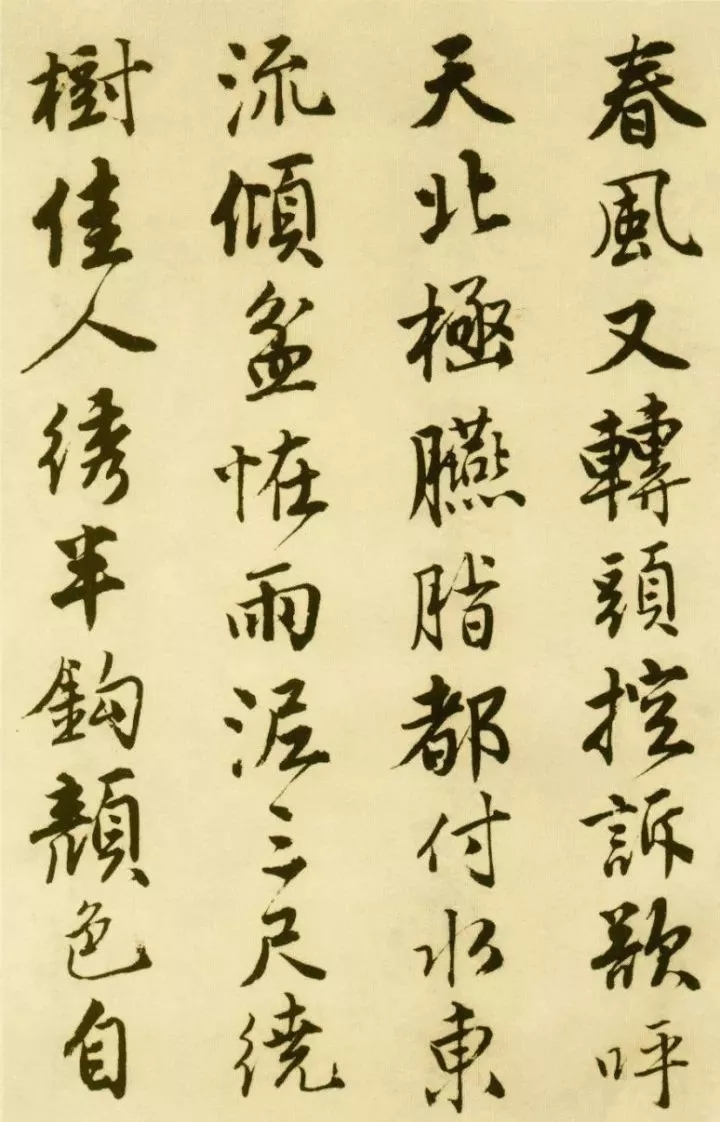 春風又轉頭控訴欲呼
天北極臙脂都付水東
流傾盆恠雨泥三尺繞
樹佳人繡半鈎顏色自